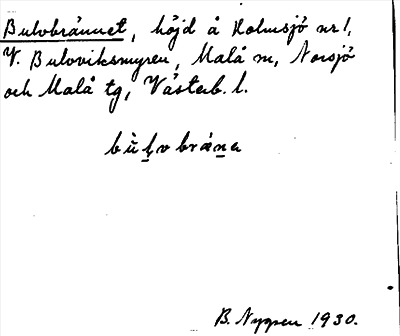 Bulvobrännet, höjd å Holmsjö nr 1,
V. Bulvoviksmyren, Malå sn, Norsjö
och Malå tg, Västerb. l.
bùl̠vobrän̠a
B. Nygren 1930.